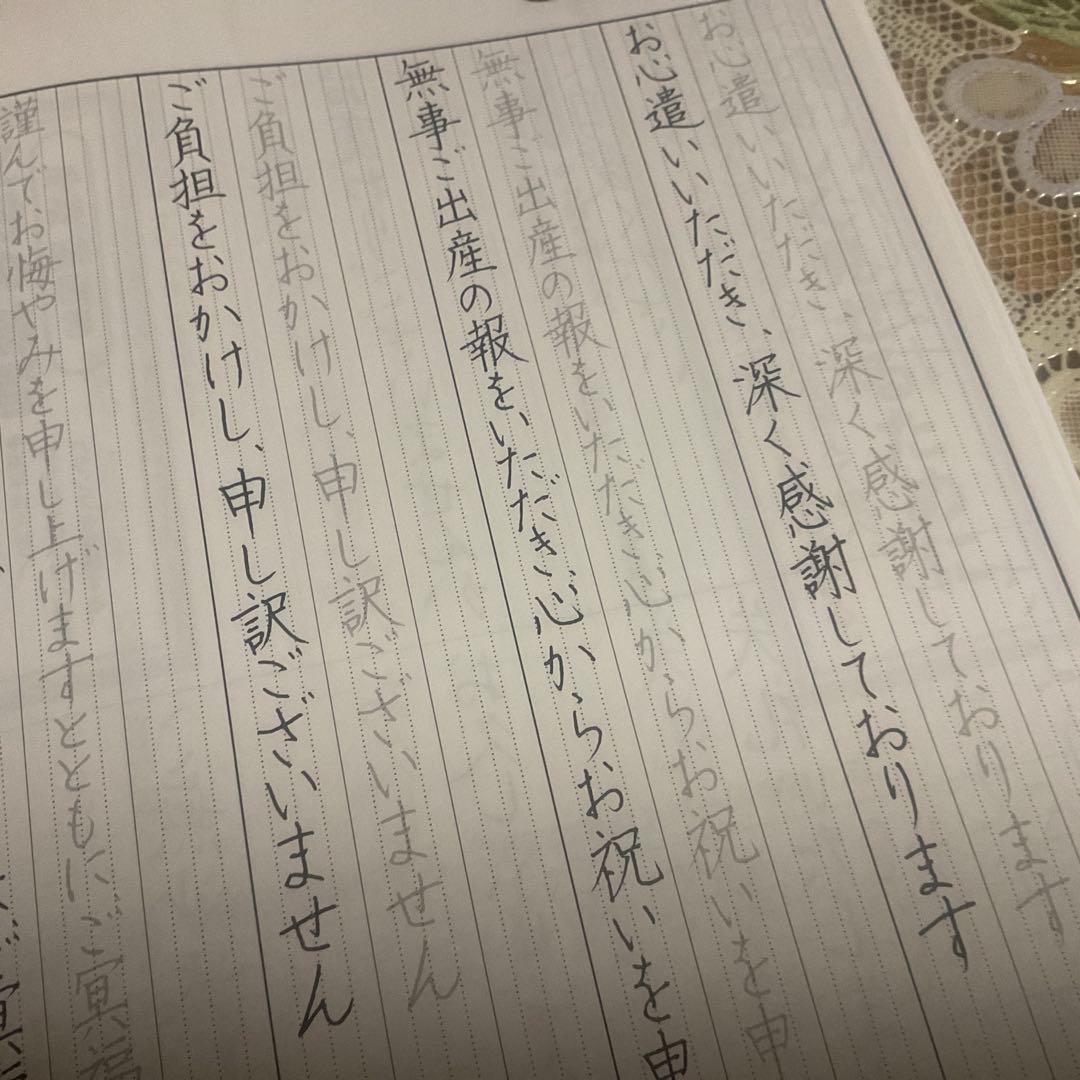 お心遣いいただき、深く感謝しております
お心遣いいただき、深く感謝しております
無事ご出産の報をいただき心からお祝いを申
無事ご出産の報をいただき心からお祝いを申
ご負担をおかけし、申し訳ございません
ご負担をおかけし、申し訳ございません
謹んでお悔やみを申し上げますとともにご冥福